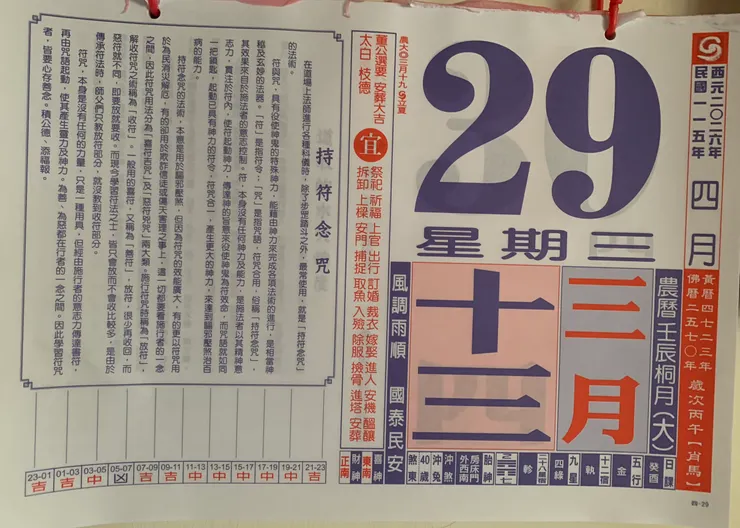 西元二〇二六年
民國一一五年
四月
29
星期三
農大〇三月十九日立夏
董公選要 安葬大吉
太白 枝德
宜
祭祀 祈福 上官 出行 訂婚 裁衣 嫁娶 進人 安機 醞釀
拆卸 上樑 安門 捕捉 取魚 入殮 除服 撿骨 進塔 安葬
黃曆四七二三年
佛曆二五七〇年
歲次丙午【肖馬】
農曆壬辰桐月(大)
三月
十三
風調雨順 國泰民安
日課 癸酉
五行 金
十二值 執
九星 四綠
二十八星宿 軫
胎神 房床門外西南
沖煞 沖兔40歲煞東
喜神 東南
財神 正南
持符念咒
在道場上法師進行各種科儀時，除了步罡踏斗之外，最常使用，就是「持符念咒」的法術。
符與咒，具有役使神鬼的特殊神力，能藉由神力來完成各項法術的進行，是相當神秘及玄妙的法器。「符」是指符令；「咒」是指咒語，符咒合用，俗稱「持符念咒」，其效果來自於施法者的意志控制。符，本身沒有任何神力及能力，是施法者以其精神意志力，貫注於符內，使符起動神力，傳達神的旨意來役使神鬼為符效命，而咒語就如同一把鎖匙，起動已具有神力的符令，符咒合一，產生更大的神力，來達到驅邪壓煞治百病的能力。
持符念咒的法術，本意是用於驅邪壓煞，但因為符咒的效能廣大，有的更以符咒用於為民消災解厄，有的卻用於欺詐信徒或傷天害理之事上，這一切都要看施行者的一念之間，因此符咒用法分為「喜符吉咒」及「惡符兇咒」兩大類。施行符咒時稱為「放符」，解收符咒之術稱為「收符」。一般用的喜符，又稱為「善符」，放符，很少再收回，而惡符就不同，即要放就要收。而現今學習符法之士，皆只會放而不會收比較多，是由於傳承符法時，師父們只教放符部分，就沒教到收符部分。
符咒，本身是沒有任何的力量，只是一種用具，但經由施行者的意志力傳達書符，再由咒語起動，使其產生靈力及神力。為善、為惡都在行者的一念之間。因此學習符咒者，皆要心存善念。積公德、添福報。
23-01 吉
01-03 吉
03-05 中
05-07 凶
07-09 吉
09-11 吉
11-13 中
13-15 中
15-17 中
17-19 中
19-21 吉
21-23 吉